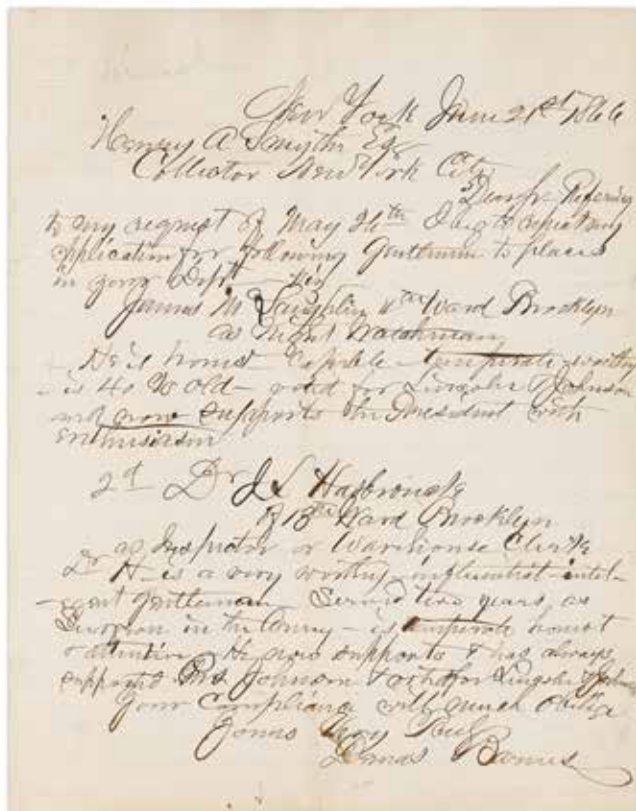 New York June 21st 1866
Henry A Smythe Esq
Collector New York City
Dear Sir Refering
to my request of May 26th I beg to repeat my
application for following Gentlemen to places
in your Dept viz
James McLaughlin Ward Brooklyn
as Night Watchman
He is honest Capable temperate worthy
is 40 Ys old voted for Lincoln & Johnson
and now supports the President with
Enthusiasm
2d Dr J L Hasbrouck
of 13th Ward Brooklyn
as Inspector or Warehouse Clerk
Dr H is a very worthy influential intel-
-igent gentleman Served two years as
Surgeon in the Army is temperate honest
& attentive He now supports & has always
supported Pres Johnson & voted for Lincoln & John
Your Compliance will much oblige
Yours Very Resp
Demas Barnes